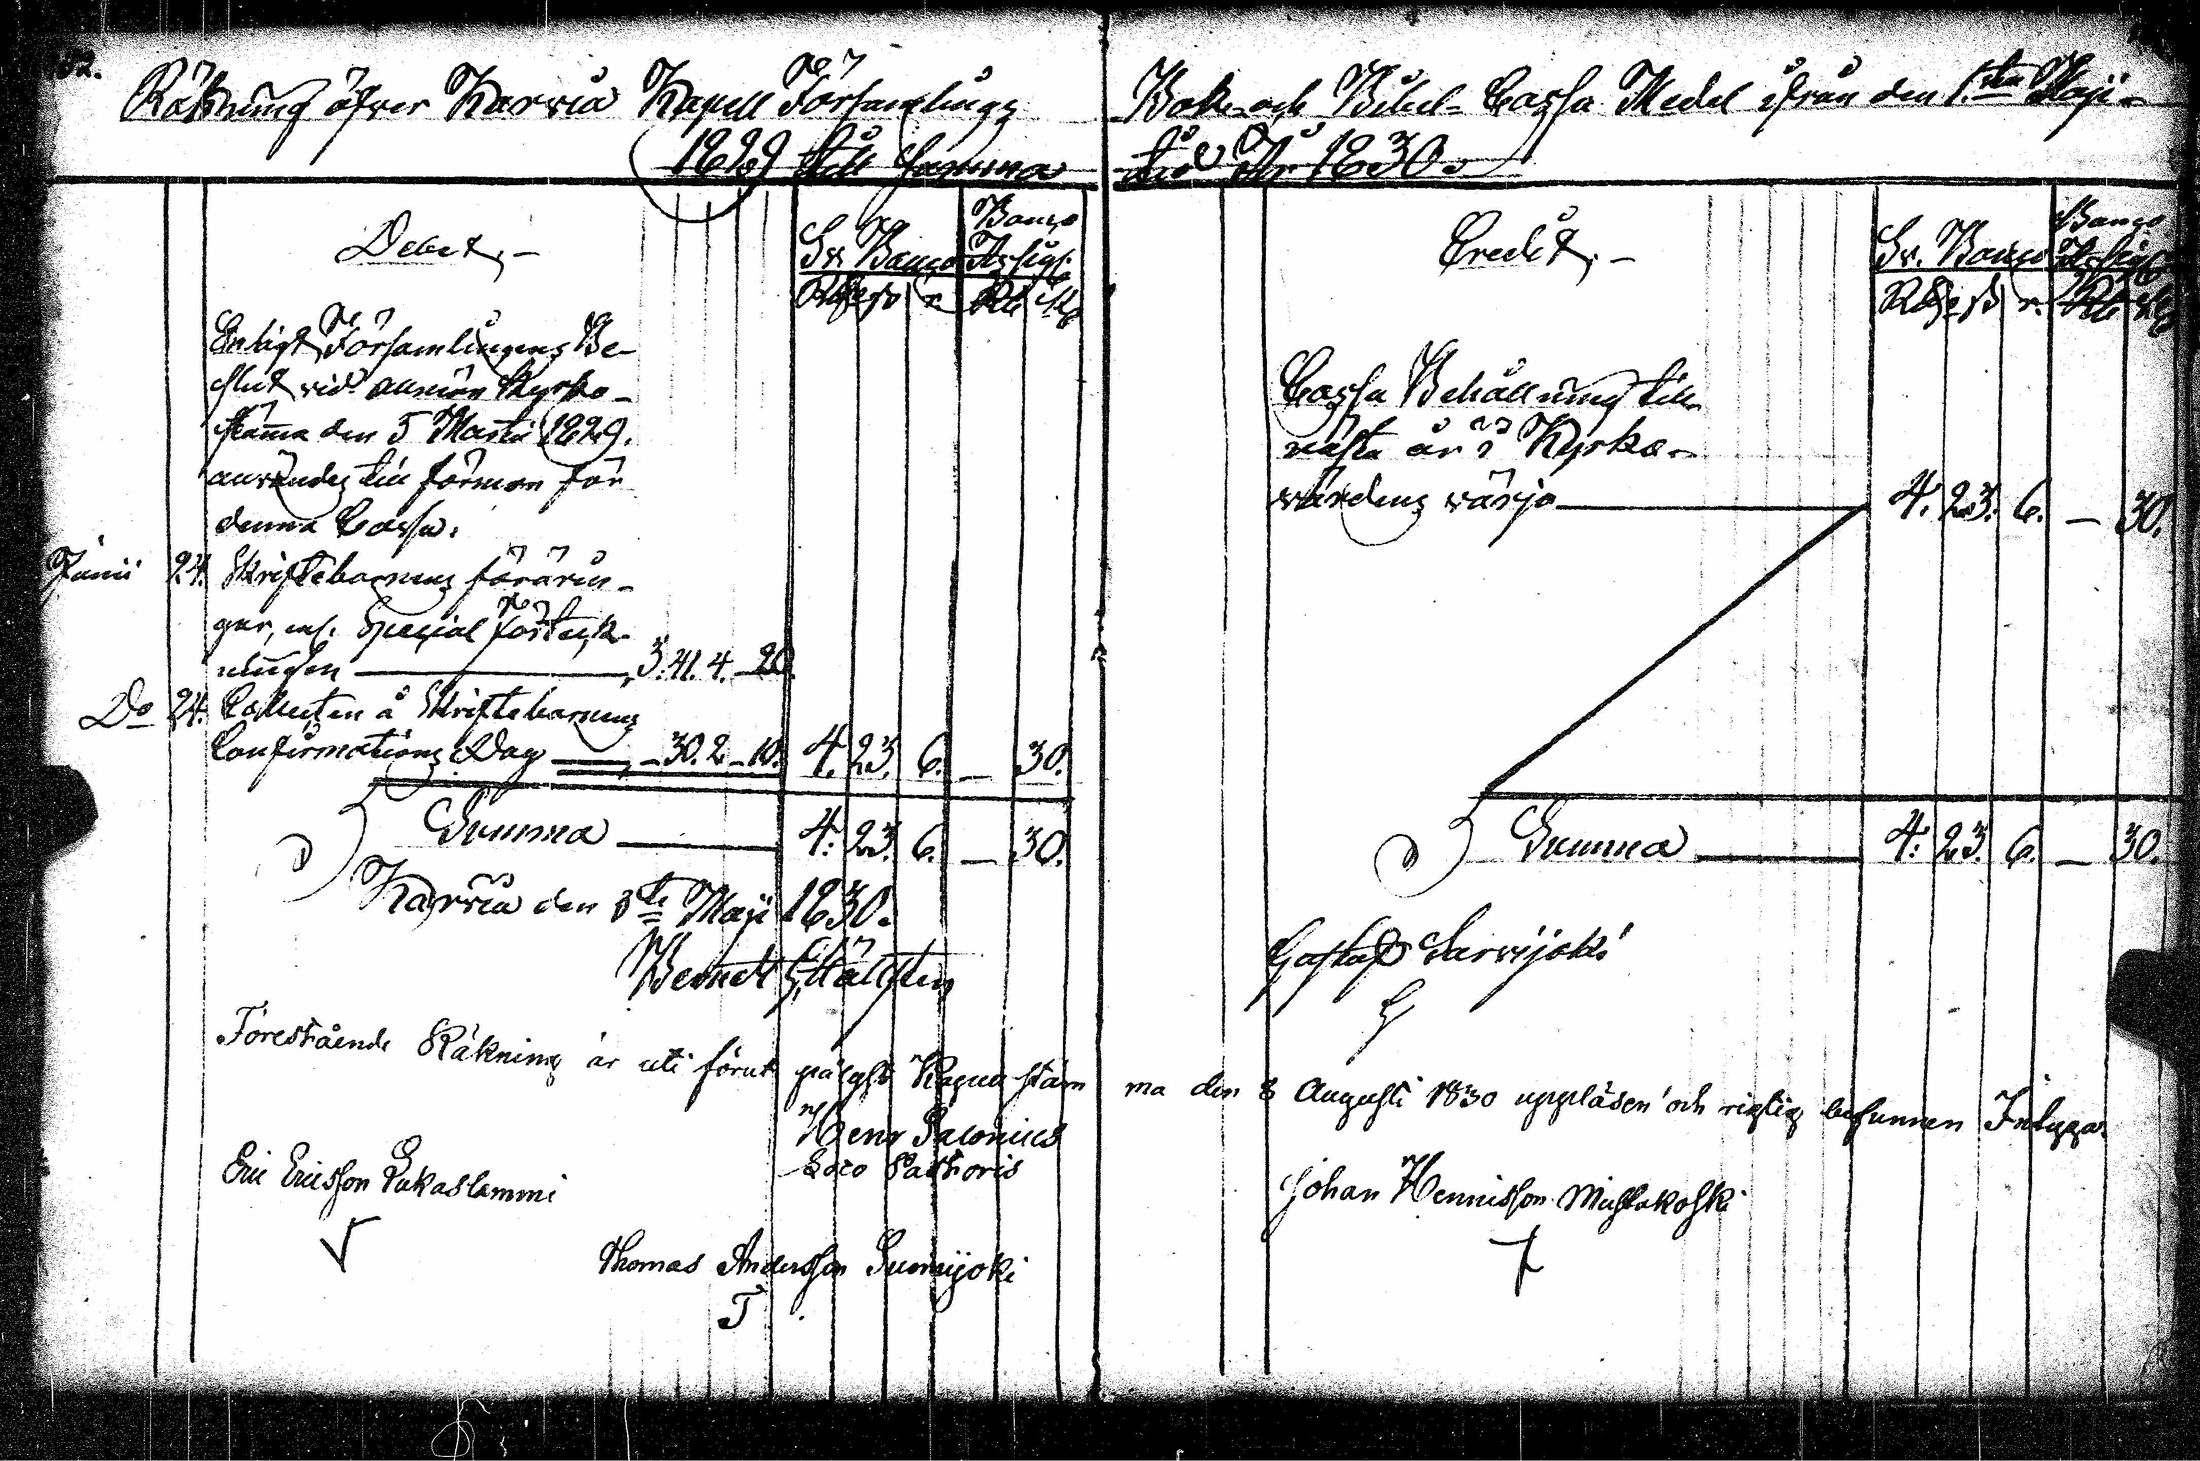 32.
Räkning öfver Karvia Kapell Församlings
1829 till samma
Debet,-
Sv. Banco
Banco Assign.
Rd sk r.
Rb
Enligt Församlingens Be-
slut vid allmän Kyrko-
stäma den 5 Martii 1829.
användes till förmon för
denna Cassa:
Junii 24. Skriftebarnens förärin-
gar, enl. Special Förteck-
ningen 3. 41. 4. - 20.
Do 24. Collecten å Skriftebarnens
Confirmations Dag - 30. 2 - 10. 4. 23. 6. - 30.
Summa 4. 23. 6. - 30.
Karvia den 8de Maji 1830.
Berndt
Förestående Räkning är uti förut pålyst stäm
Henr
Loco Pastoris
Eric Ericsson Lukaslammi
Thomas Andersson Suomijoki
T
Bok- och Bibel- Cassa Medel ifrån den 1.sta Maji
tid År 1830.
Credit,-
Sv. Banco
Banco Assign.
Rd sk r. Rb
Cassa Behållning till
nästa år i Kyrko-
värdens värjo 4. 23. 6. - 30.
Summa 4. 23. 6. - 30.
Gustaf Sarvijoki
ma den 8 Augusti 1830 uppläsen och rigtig befunnen Intygar
Johan Hennisson Mustakoski